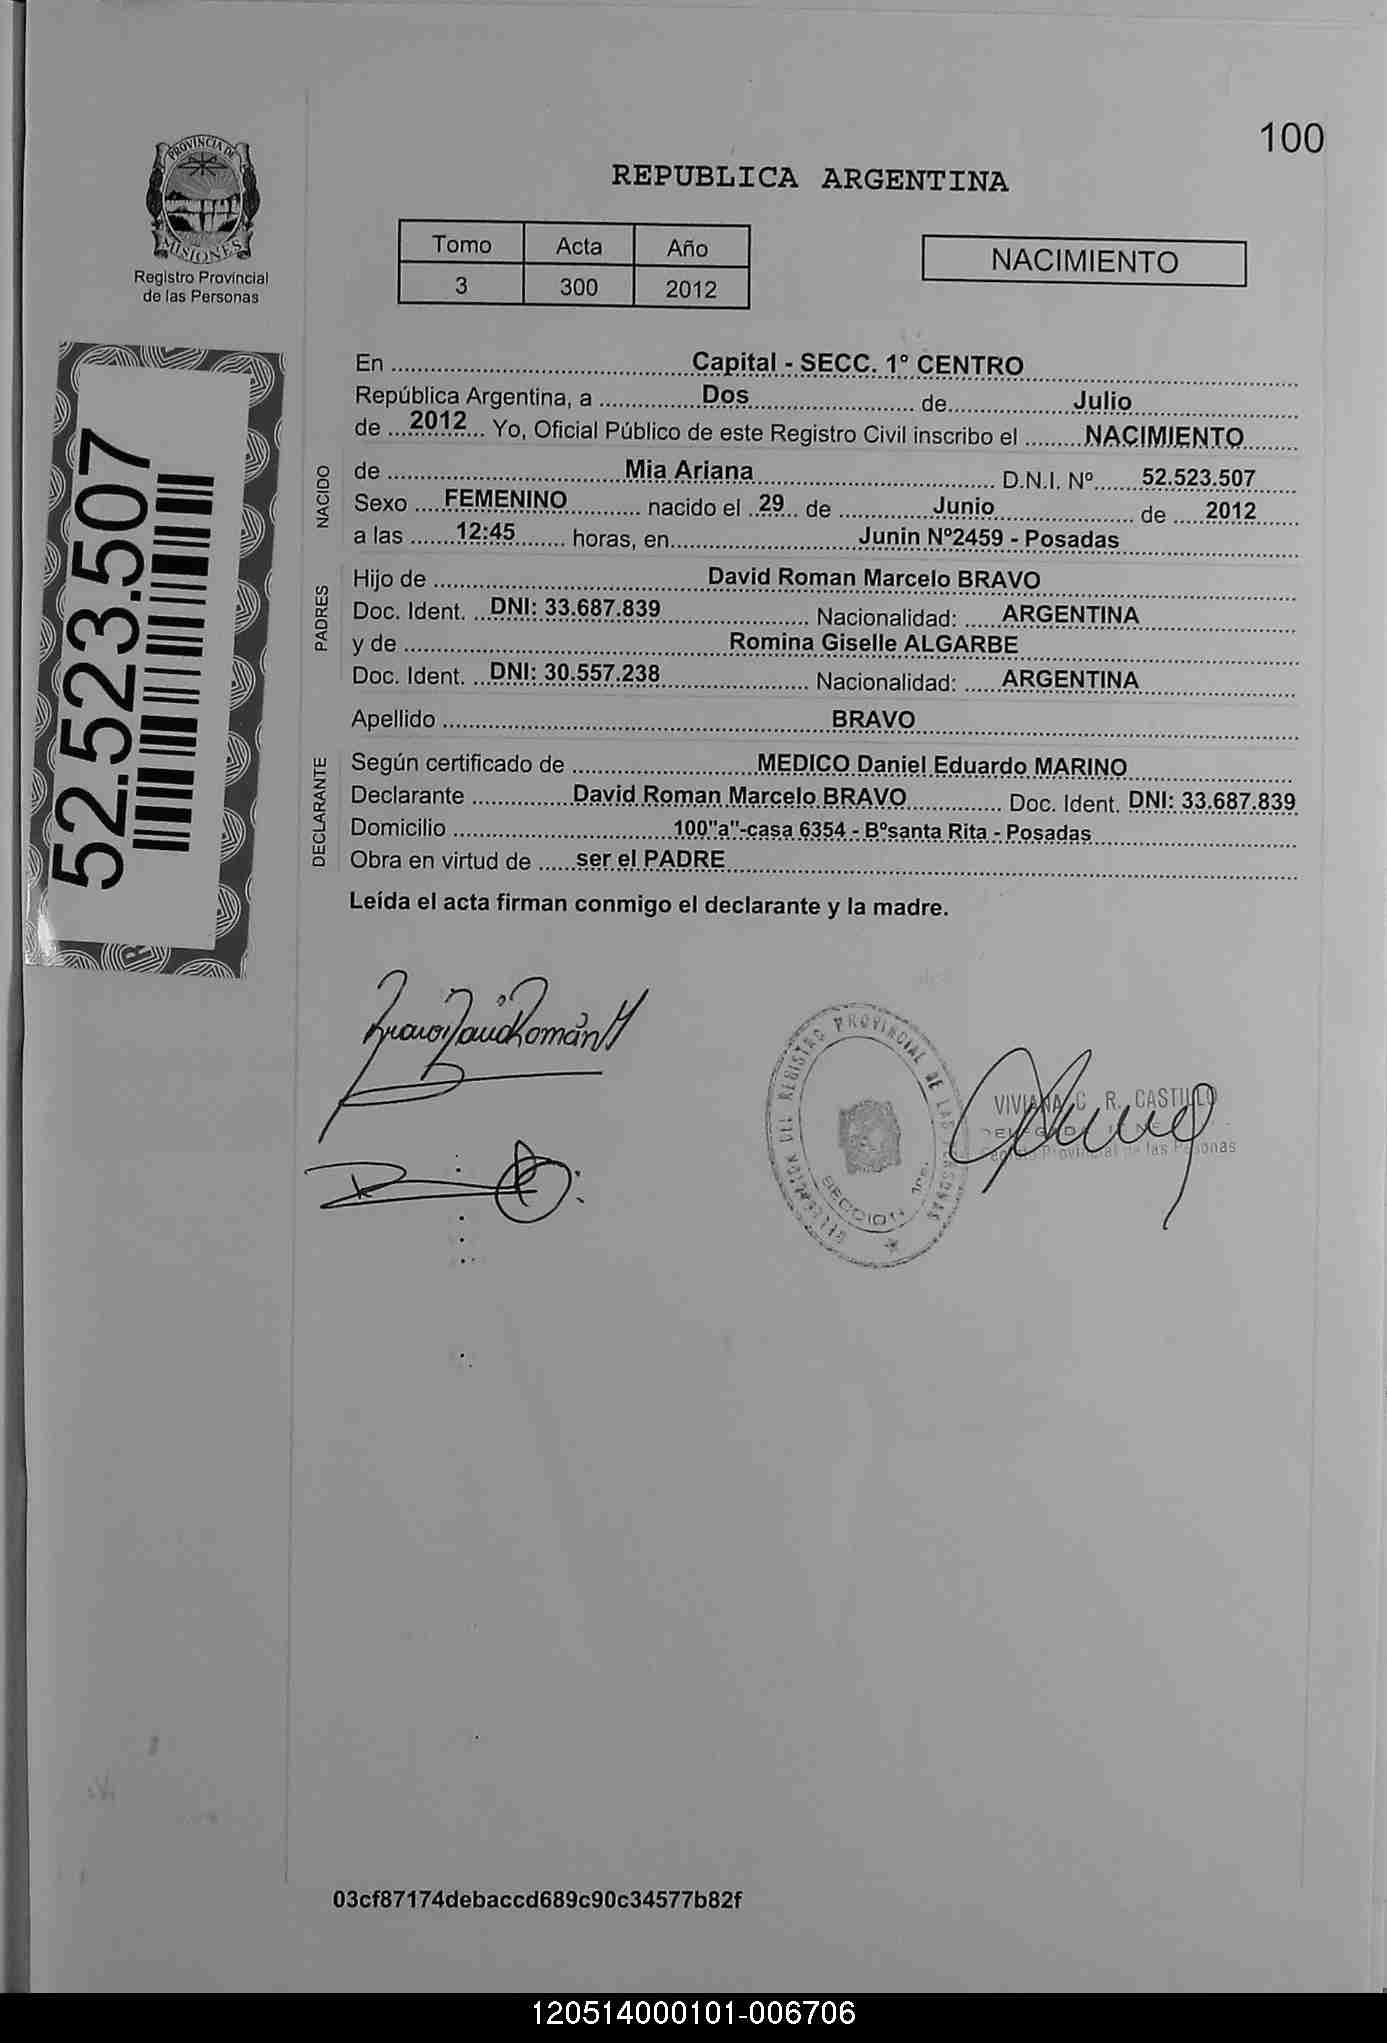 100
PROVINCIA DE
MISIONES
Registro Provincial
de las Personas
REPUBLICA ARGENTINA
Tomo Acta Año
3 300 2012
NACIMIENTO
52.523.507
En Capital - SECC. 1° CENTRO
República Argentina, a Dos de Julio
de 2012 Yo, Oficial Público de este Registro Civil inscribo el NACIMIENTO
NACIDO
de Mia Ariana D.N.I. Nº 52.523.507
Sexo FEMENINO nacido el 29 de Junio de 2012
a las 12:45 horas, en Junin Nº2459 - Posadas
PADRES
Hijo de David Roman Marcelo BRAVO
Doc. Ident. DNI: 33.687.839 Nacionalidad: ARGENTINA
y de Romina Giselle ALGARBE
Doc. Ident. DNI: 30.557.238 Nacionalidad: ARGENTINA
Apellido BRAVO
DECLARANTE
Según certificado de MEDICO Daniel Eduardo MARINO
Declarante David Roman Marcelo BRAVO Doc. Ident. DNI: 33.687.839
Domicilio 100"a"-casa 6354 - Bºsanta Rita - Posadas
Obra en virtud de ser el PADRE
Leída el acta firman conmigo el declarante y la madre.
Bravo David Román M
DELEGACION DEL REGISTRO PROVINCIAL DE LAS PERSONAS
SECCION 1ra.
VIVIANA C. R. CASTILLO
Provincial de las Personas
03cf87174debaccd689c90c34577b82f
120514000101-006706